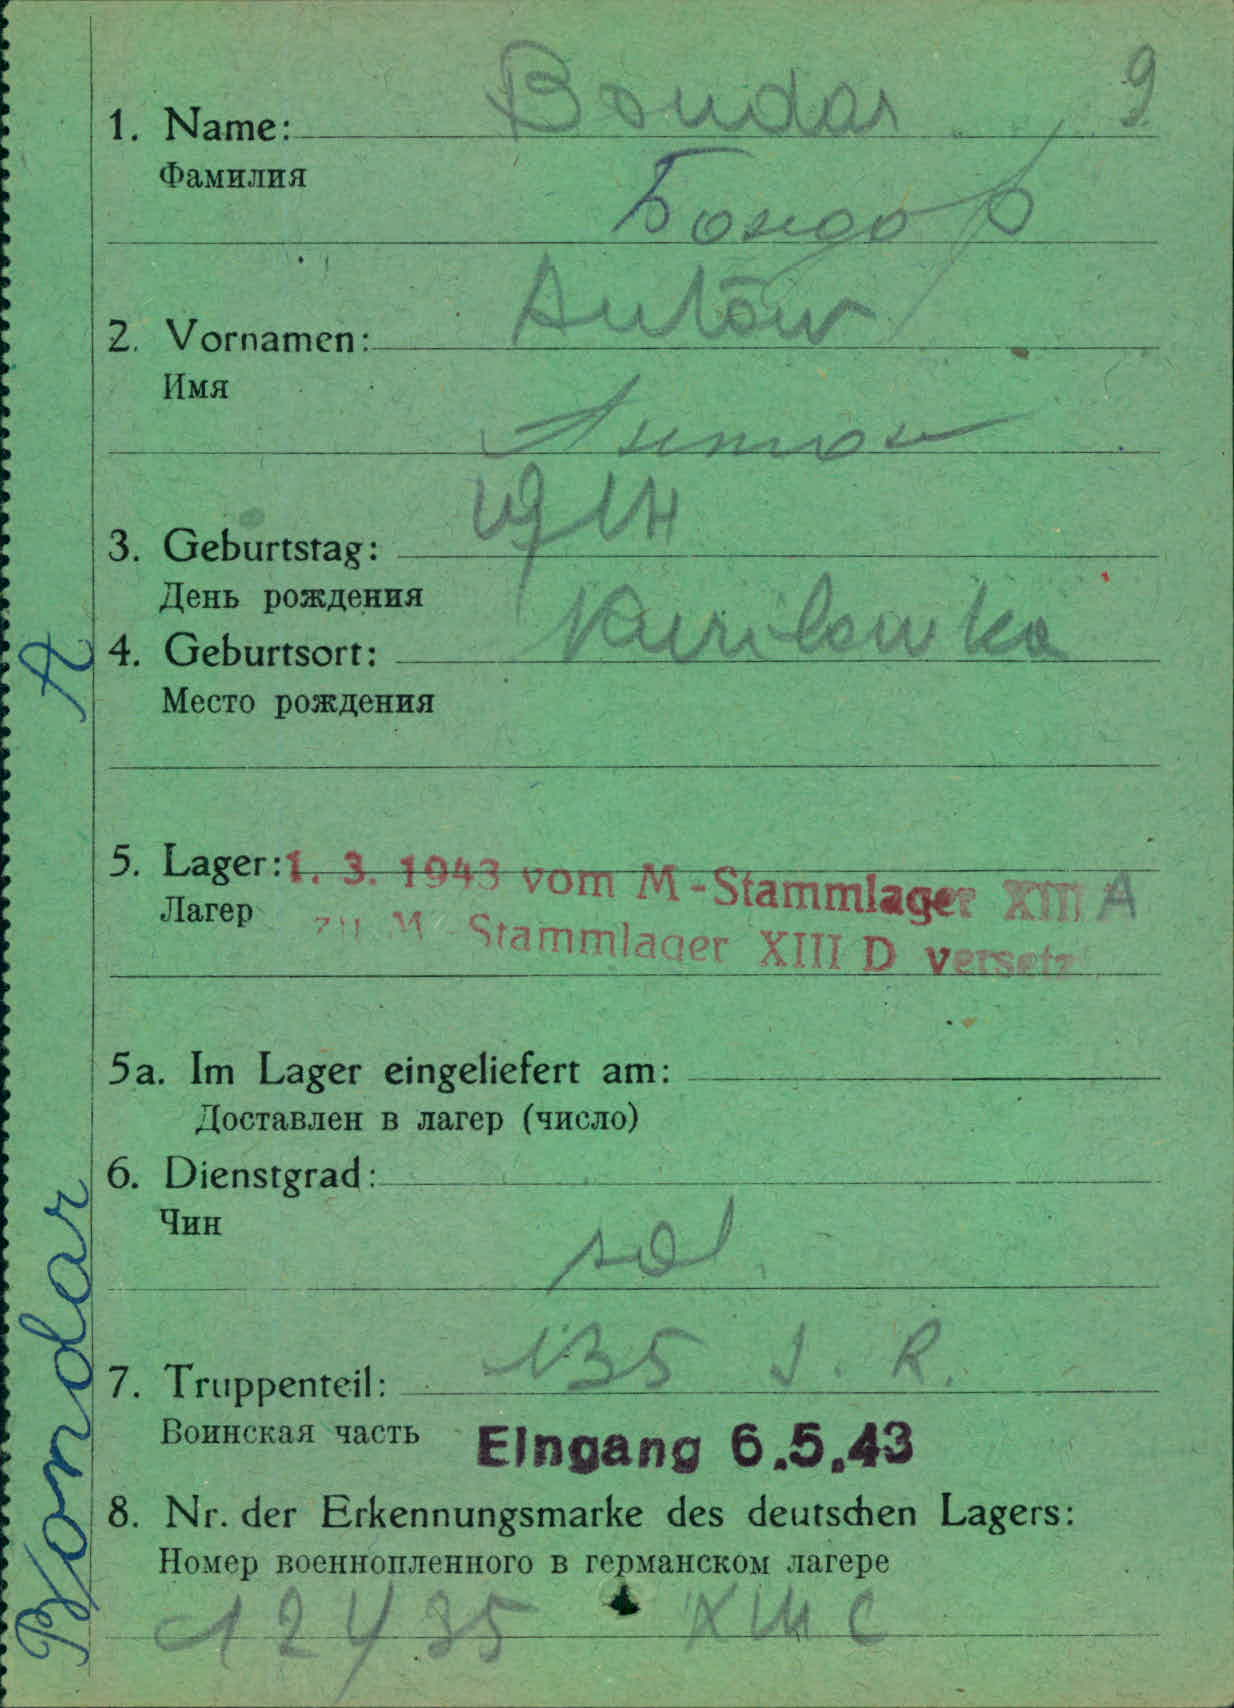 Bondar 9
1. Name:
Фамилия
Бондар
Antōn
2. Vornamen:
Имя
Антон
3. Geburtstag:
День рождения
Kurilowka
4. Geburtsort:
Место рождения
5. Lager: 1. 3. 1943 vom M-Stammlager XIII A
Лагер zu M-Stammlager XIII D versetz
5a. Im Lager eingeliefert am:
Доставлен в лагер (число)
6. Dienstgrad:
Чин
sol.
135 I. R.
7. Truppenteil:
Воинская часть Eingang 6.5.43
8. Nr. der Erkennungsmarke des deutschen Lagers:
Номер военнопленного в германском лагере
12435 XIII C
Bondar A